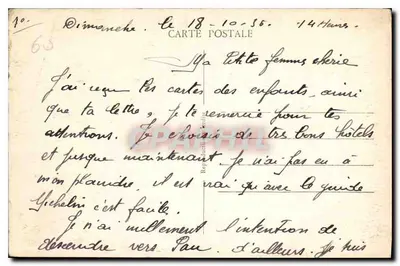 Dimanche. le 18-10-36. 14 Heures
CARTE POSTALE
Ma Petite femme cherie
J'ai reçu les cartes des enfants, ainsi
que ta lettre, je te remercie pour tes
attentions. Je choisis de très bons hôtels
et jusque maintenant je n'ai pas eu à
m'en plaindre, il est vrai qu'avec le guide
Michelin c'est facile.
Je n'ai nullement l'intention de
descendre vers Pau. d'ailleurs. Je suis